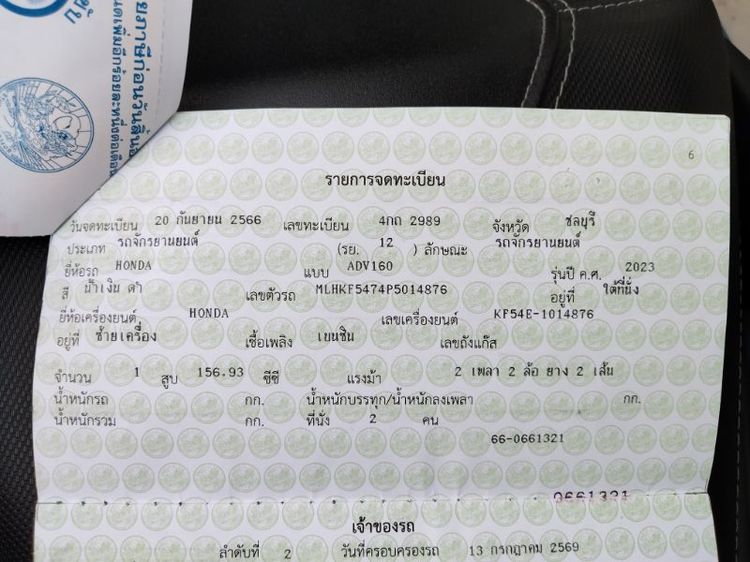 ยภาษีก่อนวันสิ้นอ
6
รายการจดทะเบียน
วันจดทะเบียน 20 กันยายน 2566 เลขทะเบียน 4กถ 2989 จังหวัด ชลบุรี
ประเภท รถจักรยานยนต์ (รย. 12 ) ลักษณะ รถจักรยานยนต์
ยี่ห้อรถ HONDA แบบ ADV160 รุ่นปี ค.ศ. 2023
สี น้ำเงิน ดำ เลขตัวรถ MLHKF5474P5014876 อยู่ที่ ใต้ที่นั่ง
ยี่ห้อเครื่องยนต์ HONDA เลขเครื่องยนต์ KF54E-1014876
อยู่ที่ ซ้ายเครื่อง เชื้อเพลิง เบนซิน เลขถังแก๊ส
จำนวน 1 สูบ 156.93 ซีซี แรงม้า 2 เพลา 2 ล้อ ยาง 2 เส้น
น้ำหนักรถ กก. น้ำหนักบรรทุก/น้ำหนักลงเพลา กก.
น้ำหนักรวม กก. ที่นั่ง 2 คน
66-0661321
0661321
เจ้าของรถ
ลำดับที่ 2 วันที่ครอบครองรถ 13 กรกฎาคม 2569